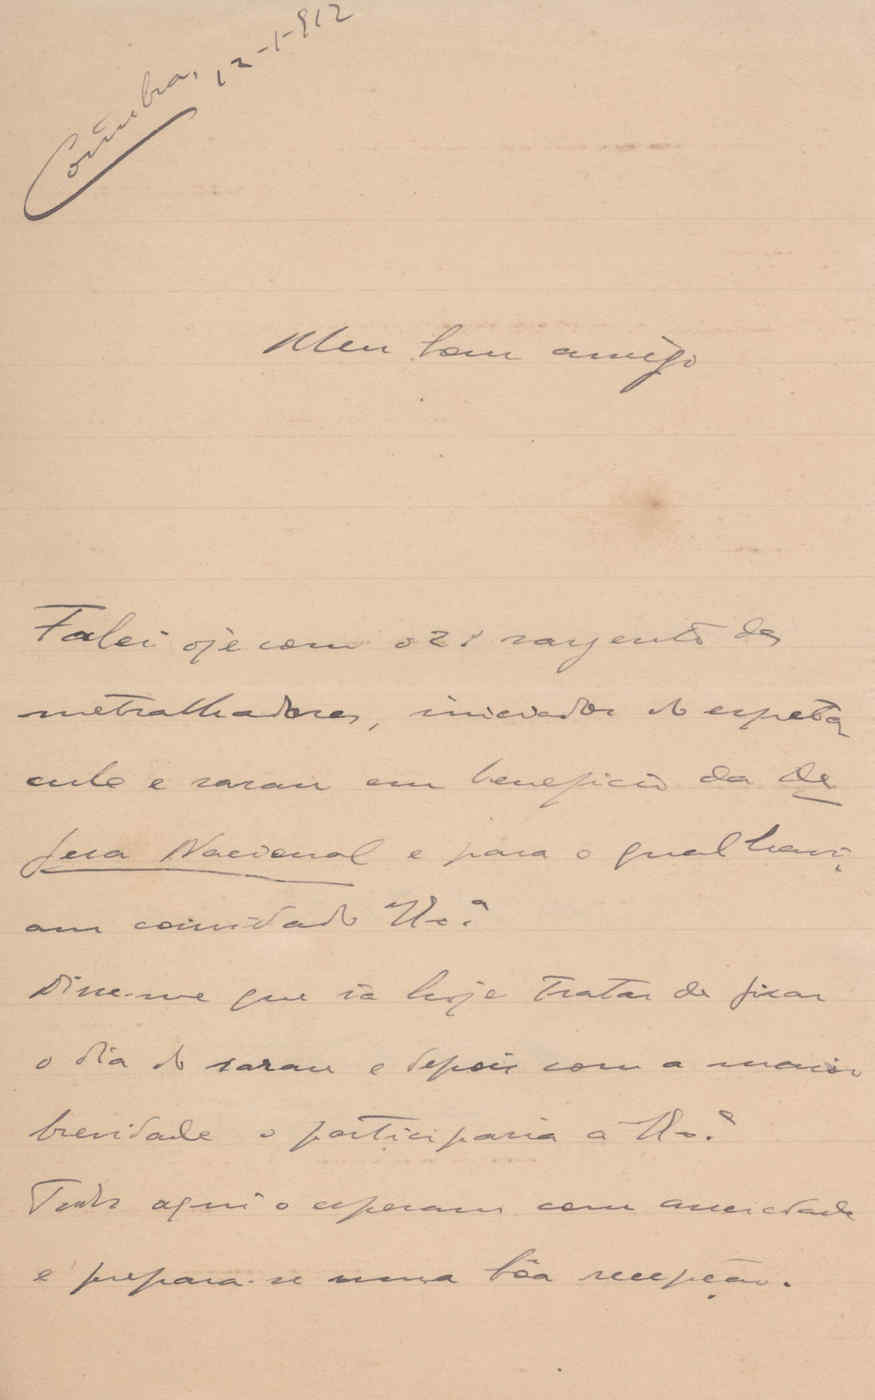 Coimbra, 12-1-912
Meu bom amigo
Falei oje com o 2º sargento das
metralhadoras, iniciador do espeta
culo e sarau em beneficio da De
fesa Nacional e para o qual havi
am convidado V. Ex.ª
Disse-me que ia hoje tratar de fixar
o dia do sarau e depois com a maior
brevidade o participaria a V. Ex.ª
Todos aqui o esperam com anciedade
e prepara-se uma bôa recepção.